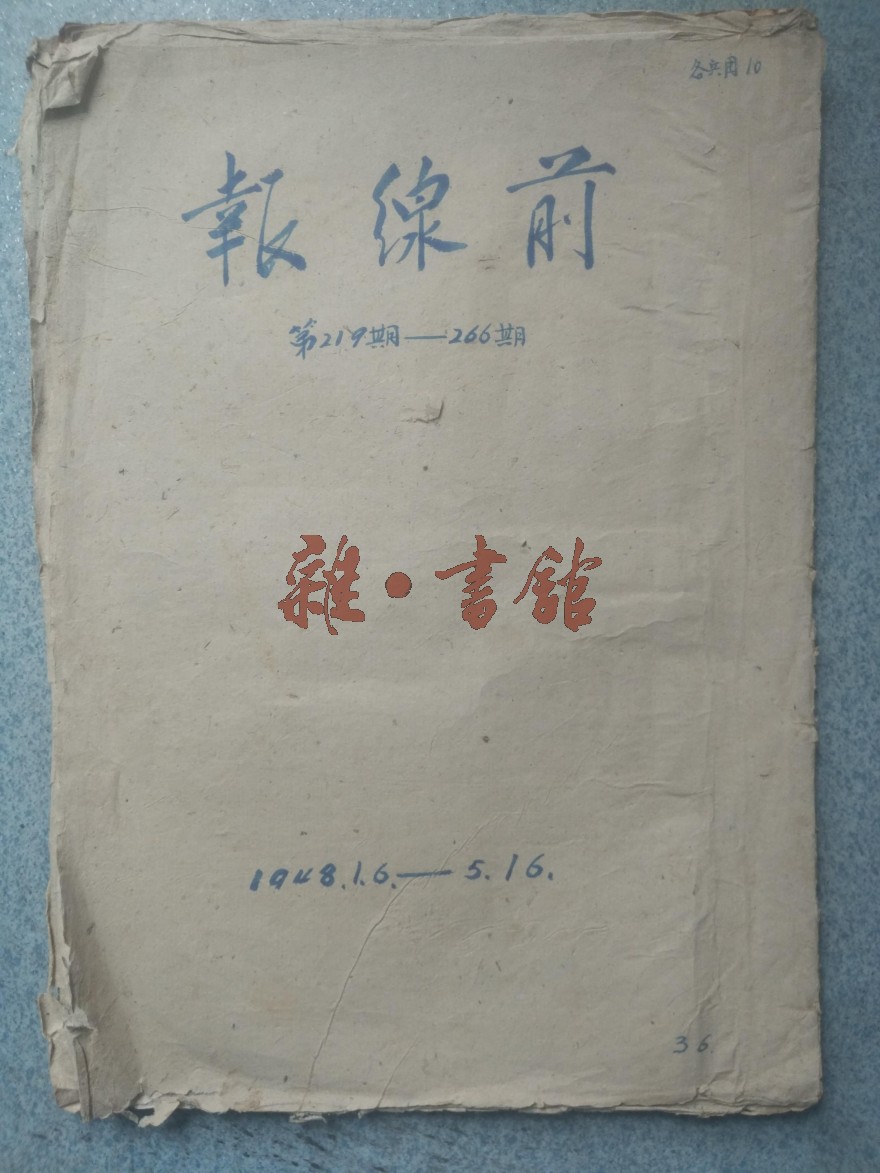 各兵团10
前線報
第219期——266期
雜·書館
1948.1.6.——5.16.
36